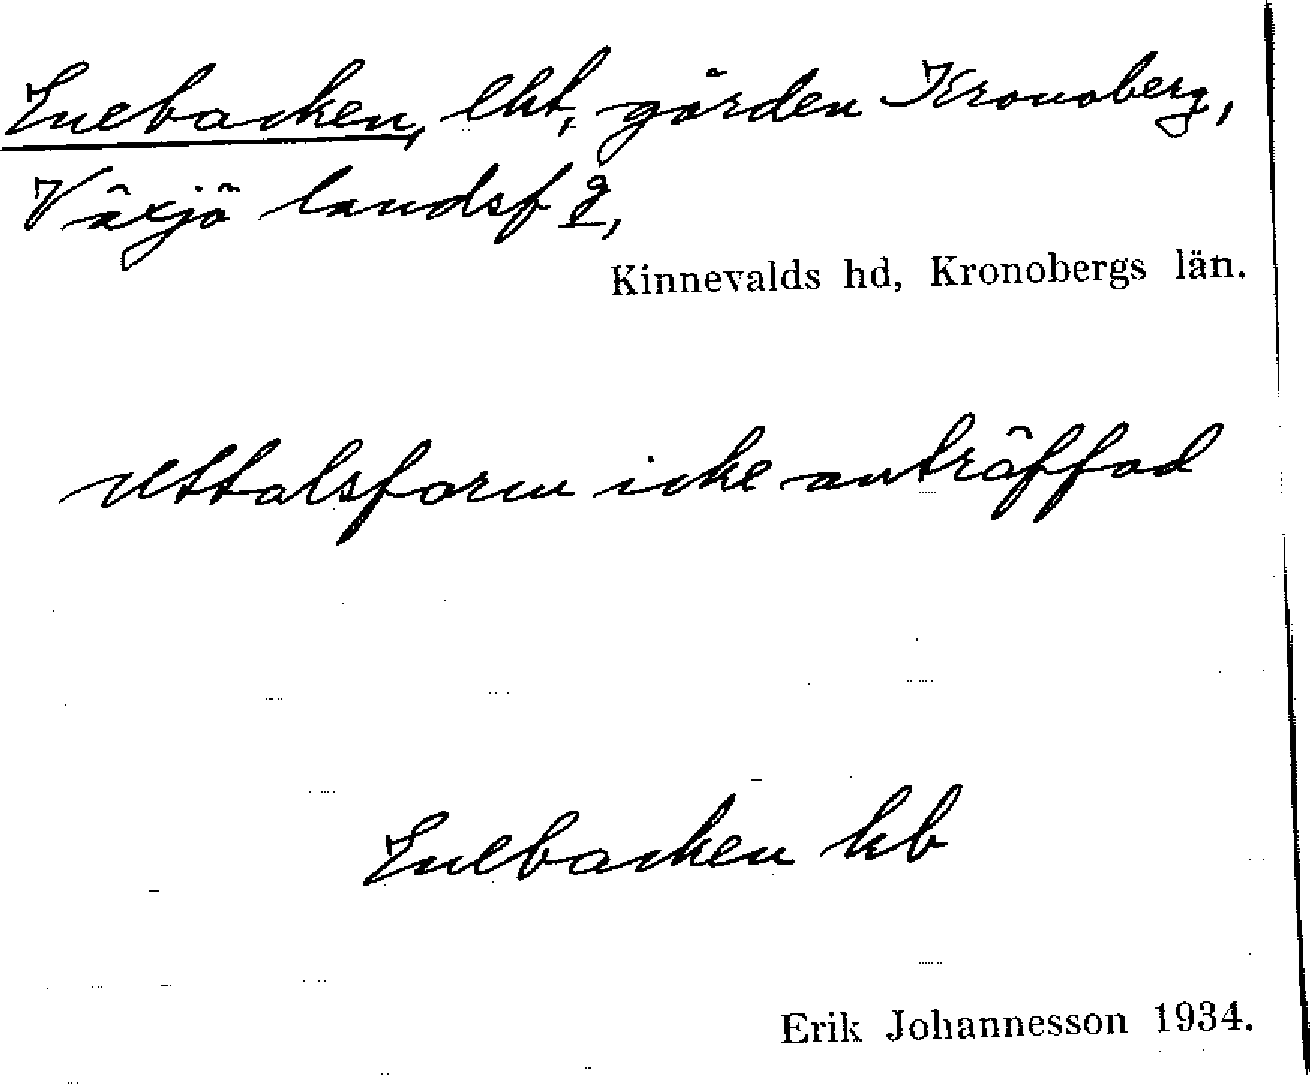 Enebacken, lht, gården Kronoberg,
Växjö landsf g,
Kinnevalds hd, Kronobergs län.
Uttalsform icke anträffad
Enebacken kb
Erik Johannesson 1934.